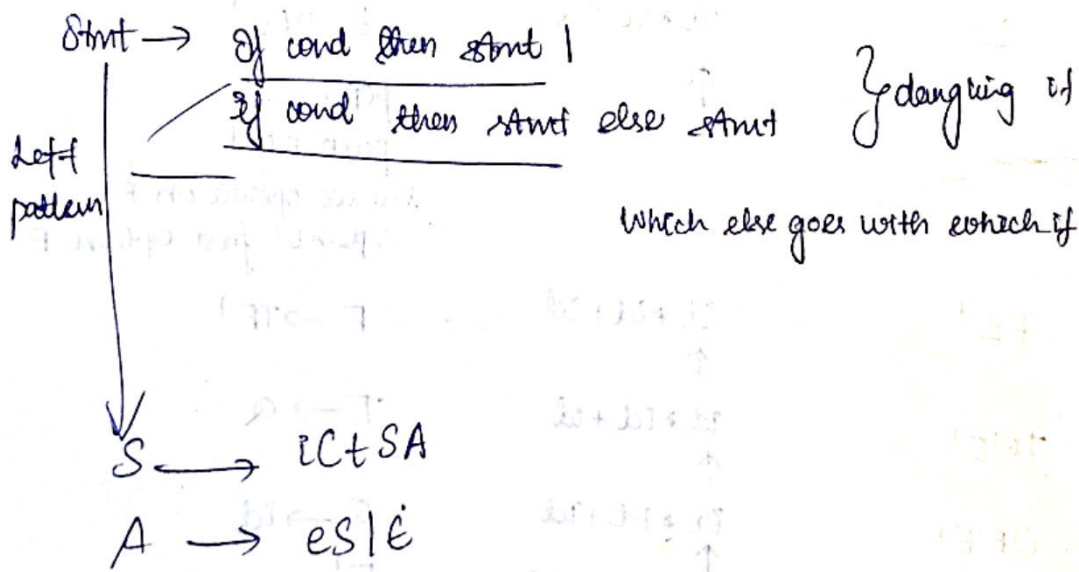 Stmt → If cond then stmt |
If cond then stmt else stmt } dangling if
Left
pattern
Which else goes with which if
S → iCtSA
A → eS|Ɛ